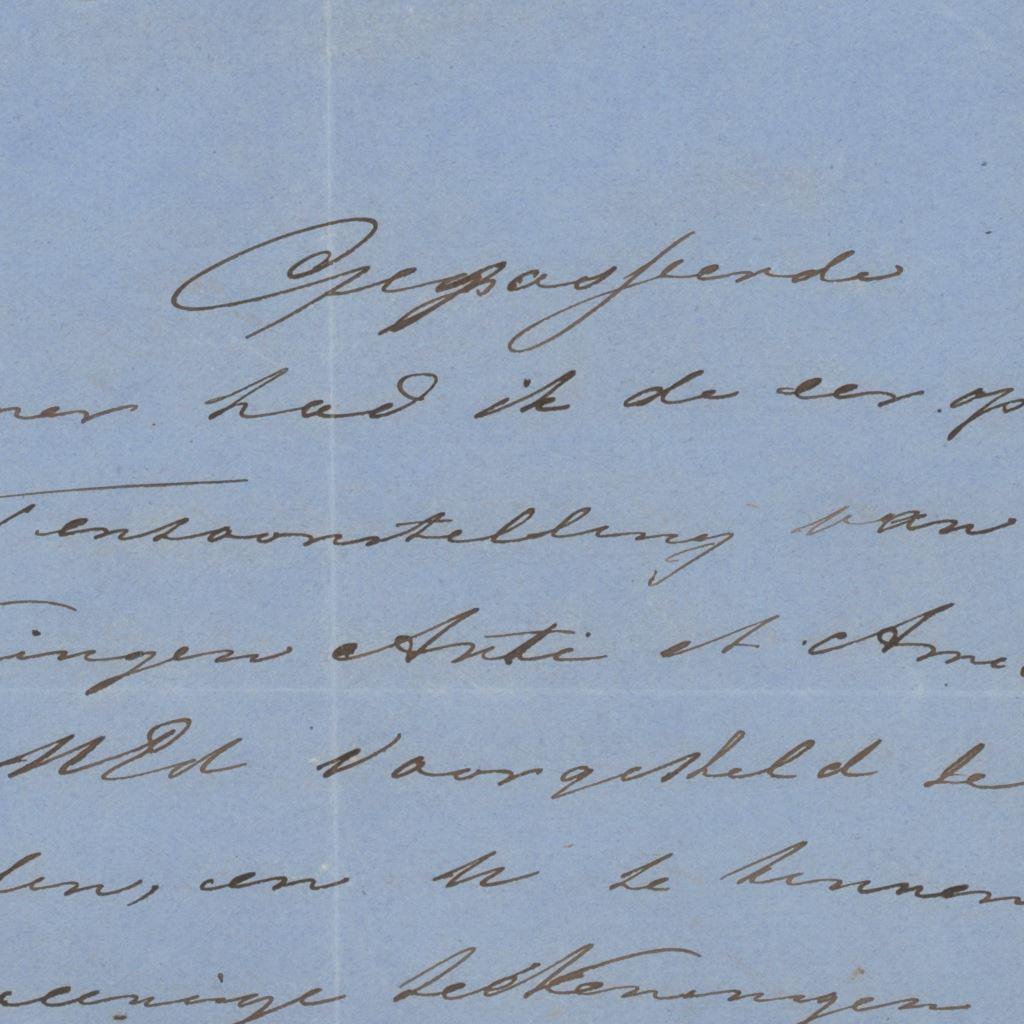 Gepasseerde
mer had ik de eer op
Tentoonstelling van
ingen Arti et Ami
UEd voorgesteld te
den, en U te kunnen
eenige teekeningen